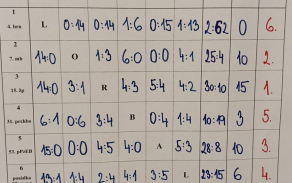 1
4. hrn L 0:14 0:14 1:6 0:15 1:13 2:62 0 6.
2
7. mb 14:0 O 1:3 6:0 0:0 4:1 25:4 10 2.
3
15. žp 14:0 3:1 R 4:3 5:4 4:2 30:10 15 1.
4
31. pechbo 6:1 0:6 3:4 B 0:4 1:4 10:19 3 5.
5
53. pPzEB 15:0 0:0 4:5 4:0 A 5:3 28:8 10 3.
6
posádka 13:1 1:4 2:4 4:1 3:5 L 23:15 6 4.